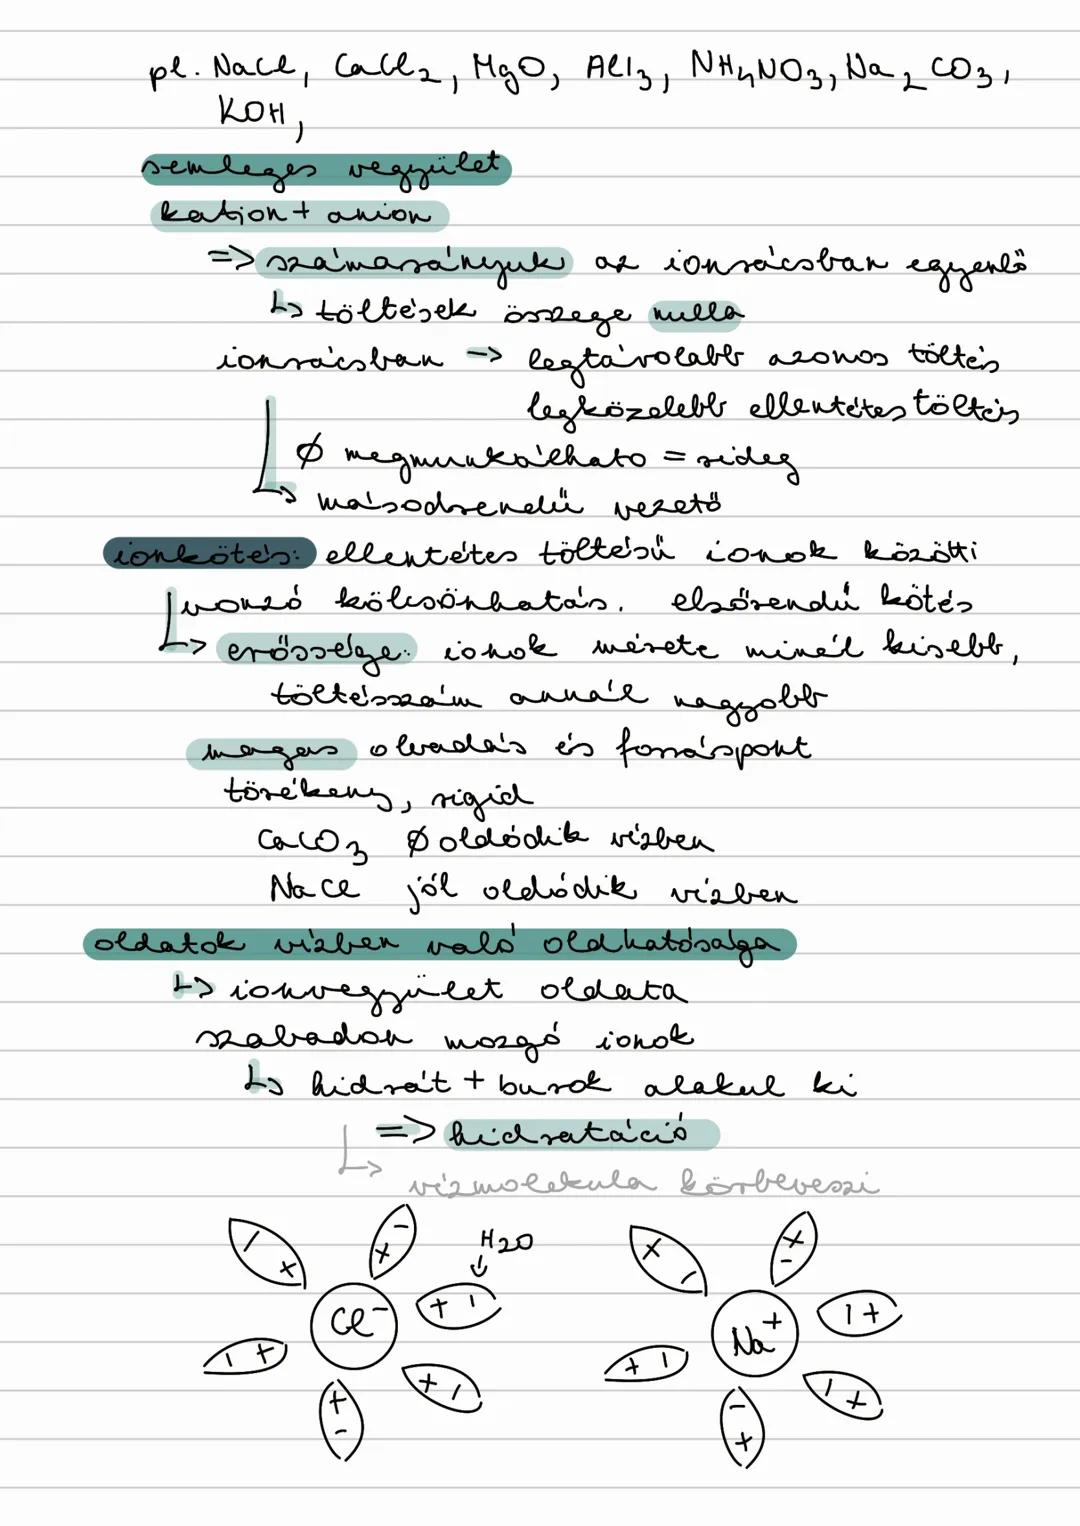 pl. NaCl, CaCl2, MgO, AlI3, NH4NO3, Na2CO3,
KOH,
semleges vegyület
kation + anion
=> számarányuk az ionrácsban egyenlő
↳ töltések összege nulla
ionrácsban -> legtávolabb azonos töltés
legközelebb ellentétes töltés
Ø megmunkálható = rideg
másodrendű vezető
ionkötés: ellentétes töltésű ionok közötti
vonzó kölcsönhatás. elsőrendű kötés
erőssége: ionok mérete minél kisebb,
töltésszám annál nagyobb
magas olvadás és forráspont
törékeny, rigid
CaCO3 Ø oldódik vízben
NaCl jól oldódik vízben
oldatok vízben való oldhatósága
↳ ionvegyület oldata
szabadon mozgó ionok
↳ hidrát + burok alakul ki
=> hidratáció
vízmolekula körbeveszi
H2O
Cl-
Na+